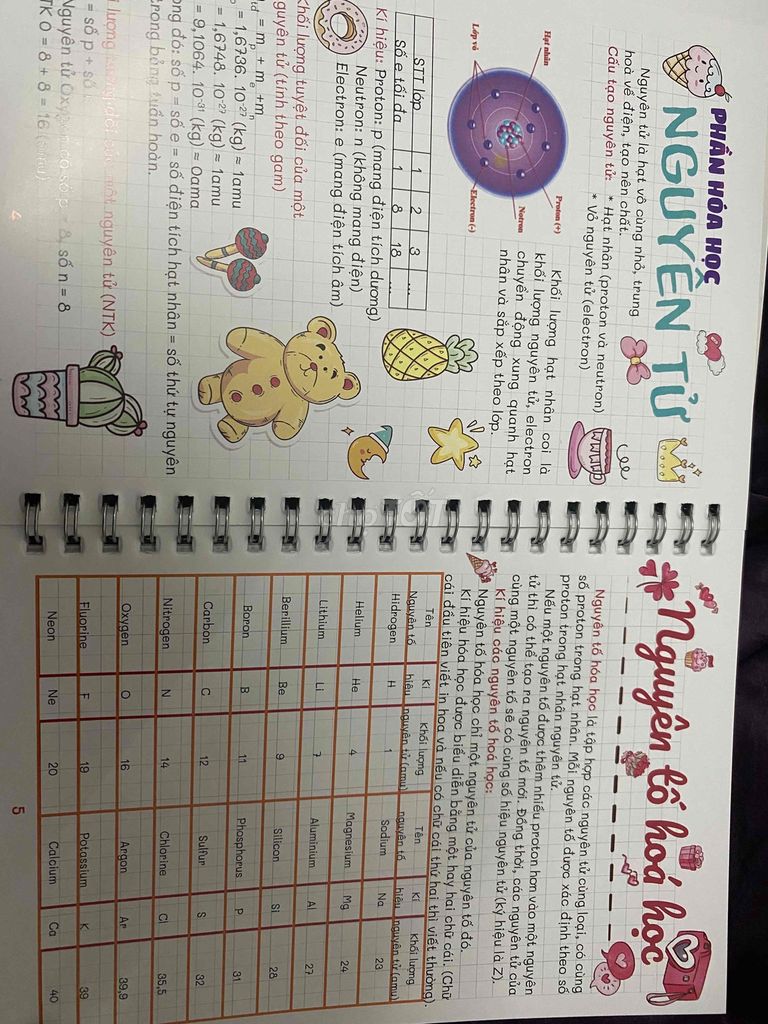 PHẦN HÓA HỌC
NGUYÊN TỬ
Nguyên tử là hạt vô cùng nhỏ, trung
hoà về điện, tạo nên chất.
Cấu tạo nguyên tử: * Hạt nhân (proton và neutron)
* Vỏ nguyên tử (electron)
Hạt nhân
Lớp vỏ
Proton (+)
Nơtron
Electron (-)
Khối lượng hạt nhân coi là
khối lượng nguyên tử, electron
chuyển động xung quanh hạt
nhân và sắp xếp theo lớp.
STT lớp 1 2 3 ...
Số e tối đa 1 8 18 ...
Kí hiệu: Proton: p (mang điện tích dương)
Neutron: n (không mang điện)
Electron: e (mang điện tích âm)
Khối lượng tuyệt đối của một
guyên tử (tính theo gam)
= mp + me + mn
= 1,6736. 10-27 (kg) ≈ 1amu
= 1,6748. 10-27 (kg) ≈ 1amu
= 9,1064. 10-31 (kg) ≈ 0amu
ong đó: số p = số e = số điện tích hạt nhân = số thứ tự nguyên
trong bảng tuần hoàn.
một nguyên tử (NTK)
= số p + số
Nguyên tử số n = 8
TK O = 8 + 8 = 16
4
Nguyên tố hoá học
Nguyên tố hóa học là tập hợp các nguyên tử cùng loại, có cùng
số proton trong hạt nhân. Mỗi nguyên tố được xác định theo số
proton trong hạt nhân nguyên tử.
Nếu một nguyên tố được thêm nhiều proton hơn vào một nguyên
tử thì có thể tạo ra nguyên tố mới. Đồng thời, các nguyên tử của
cùng một nguyên tố sẽ có cùng số hiệu nguyên tử (ký hiệu là Z).
Kí hiệu các nguyên tố hoá học:
Nguyên tố hóa học chỉ một nguyên tử của nguyên tố đó.
Kí hiệu hóa học được biểu diễn bằng một hay hai chữ cái. (Chữ
cái đầu tiên viết in hoa và nếu có chữ cái thứ hai thì viết thường).
Tên Kí Khối lượng Tên Kí Khối lượng
Nguyên tố hiệu nguyên tử (amu) nguyên tố hiệu nguyên tử (amu)
Hidrogen H 1 Sodium Na 23
Helium He 4 Magnesium Mg 24
Lithium Li 7 Aluminium Al 27
Berillium Be 9 Silicon Si 28
Boron B 11 Phosphorus P 31
Carbon C 12 Sulfur S 32
Nitrogen N 14 Chlorine Cl 35,5
Oxygen O 16 Argon Ar 39,9
Fluorine F 19 Potassium K 39
Neon Ne 20 Calcium Ca 40
5